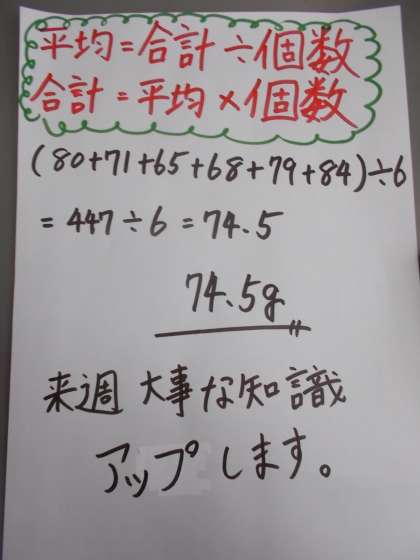 平均=合計÷個数
合計=平均×個数
(80+71+65+68+79+84)÷6
=447÷6=74.5
74.5g
来週 大事な知識
アップします。